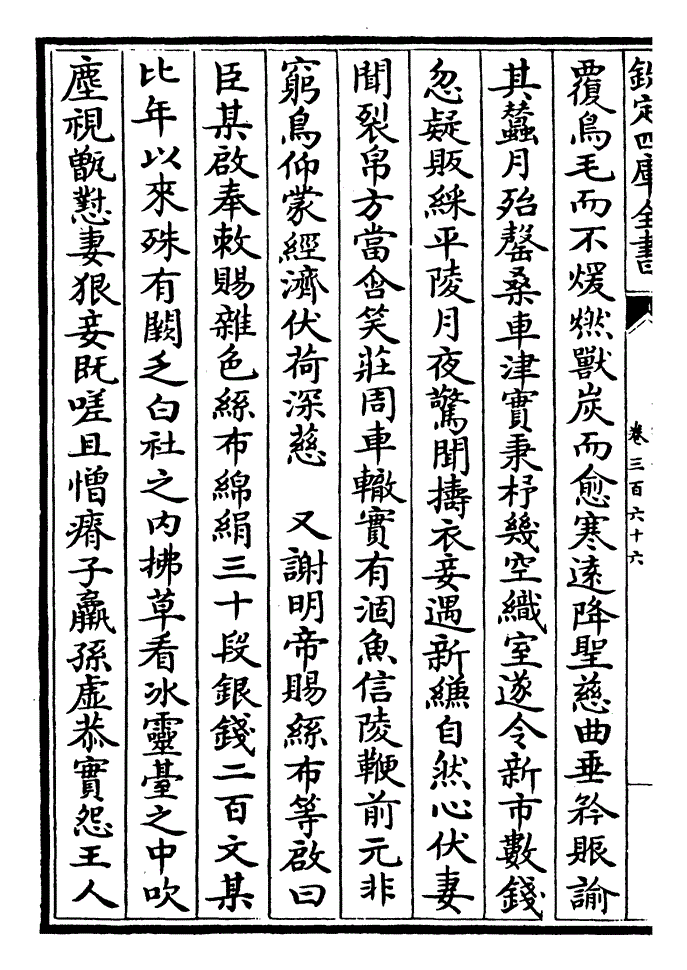 欽定四庫全書
卷三百六十六
覆鳥毛而不煖燃獸炭而愈寒遠降聖慈曲垂矜賑諭
其蠶月殆罄桑車津實秉杼幾空織室遂令新市數錢
忽疑販綵平陵月夜驚聞擣衣妾遇新縑自然心伏妻
聞裂帛方當含笑莊周車轍實有涸魚信陵鞭前元非
窮鳥仰蒙經濟伏荷深慈　又謝明帝賜絲布等啟曰
臣某啟奉敕賜雜色絲布綿絹三十段銀錢二百文某
比年以來殊有闕乏白社之内拂草看冰靈臺之中吹
塵視甑懟妻狠妾既嗟且憎瘠子羸孫虛恭實怨王人